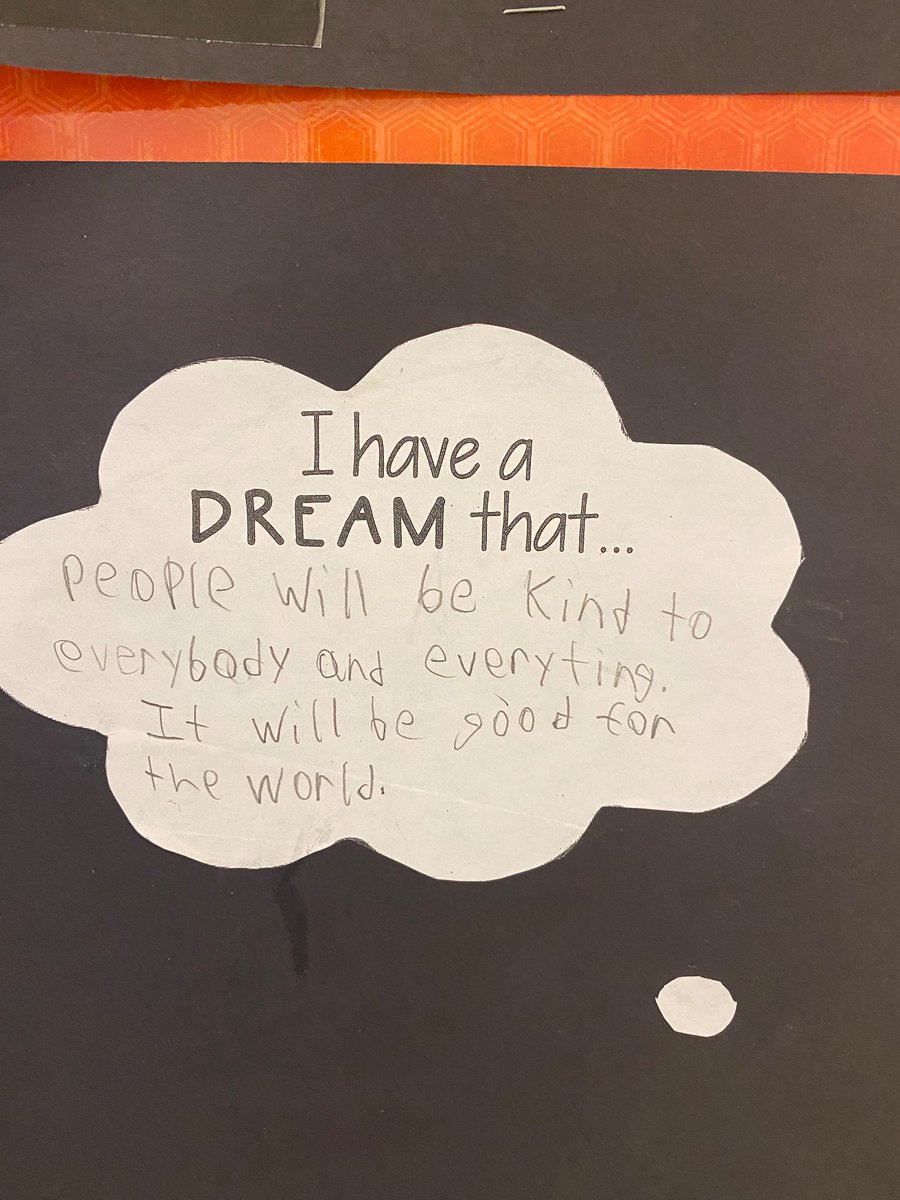 I have a
DREAM that...
people will be kind to
everybody and everyting.
It will be good for
the world.